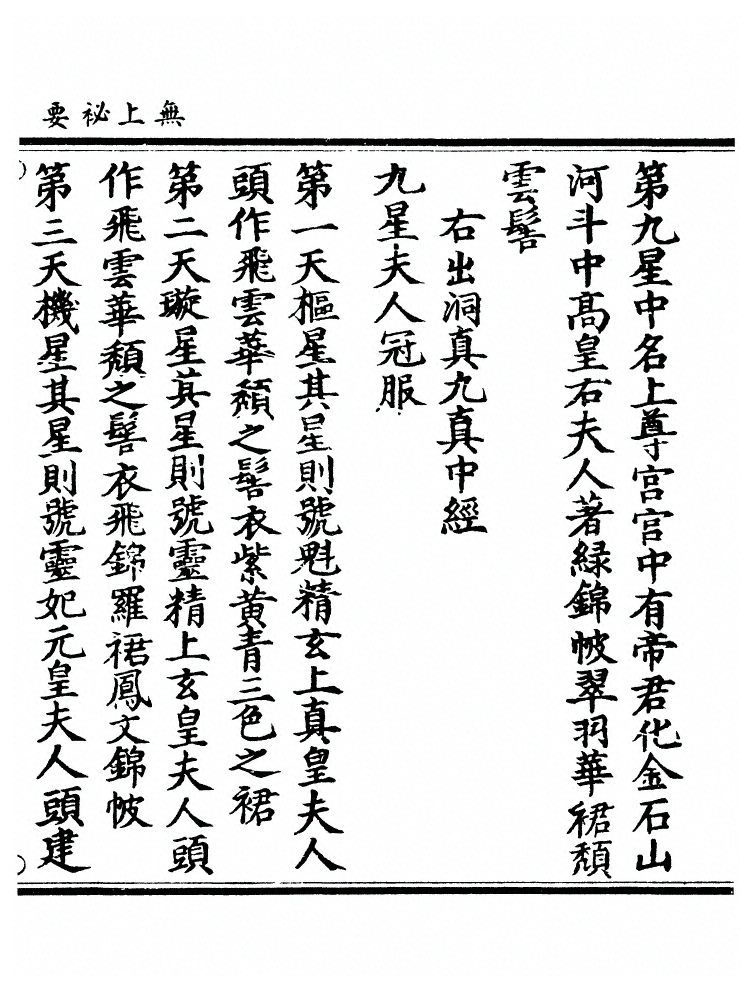 無上祕要
第九星中名上尊宮宮中有帝君化金石山
河斗中高皇右夫人著緑錦帔翠羽華裙頽
雲髻
右出洞真九真中經
九星夫人冠服
第一天樞星其星則號魁精玄上真皇夫人
頭作飛雲華頽之髻衣紫黄青三色之裙
第二天璇星其星則號靈精上玄皇夫人頭
作飛雲華頽之髻衣飛錦羅裙鳳文錦帔
第三天機星其星則號靈妃元皇夫人頭建